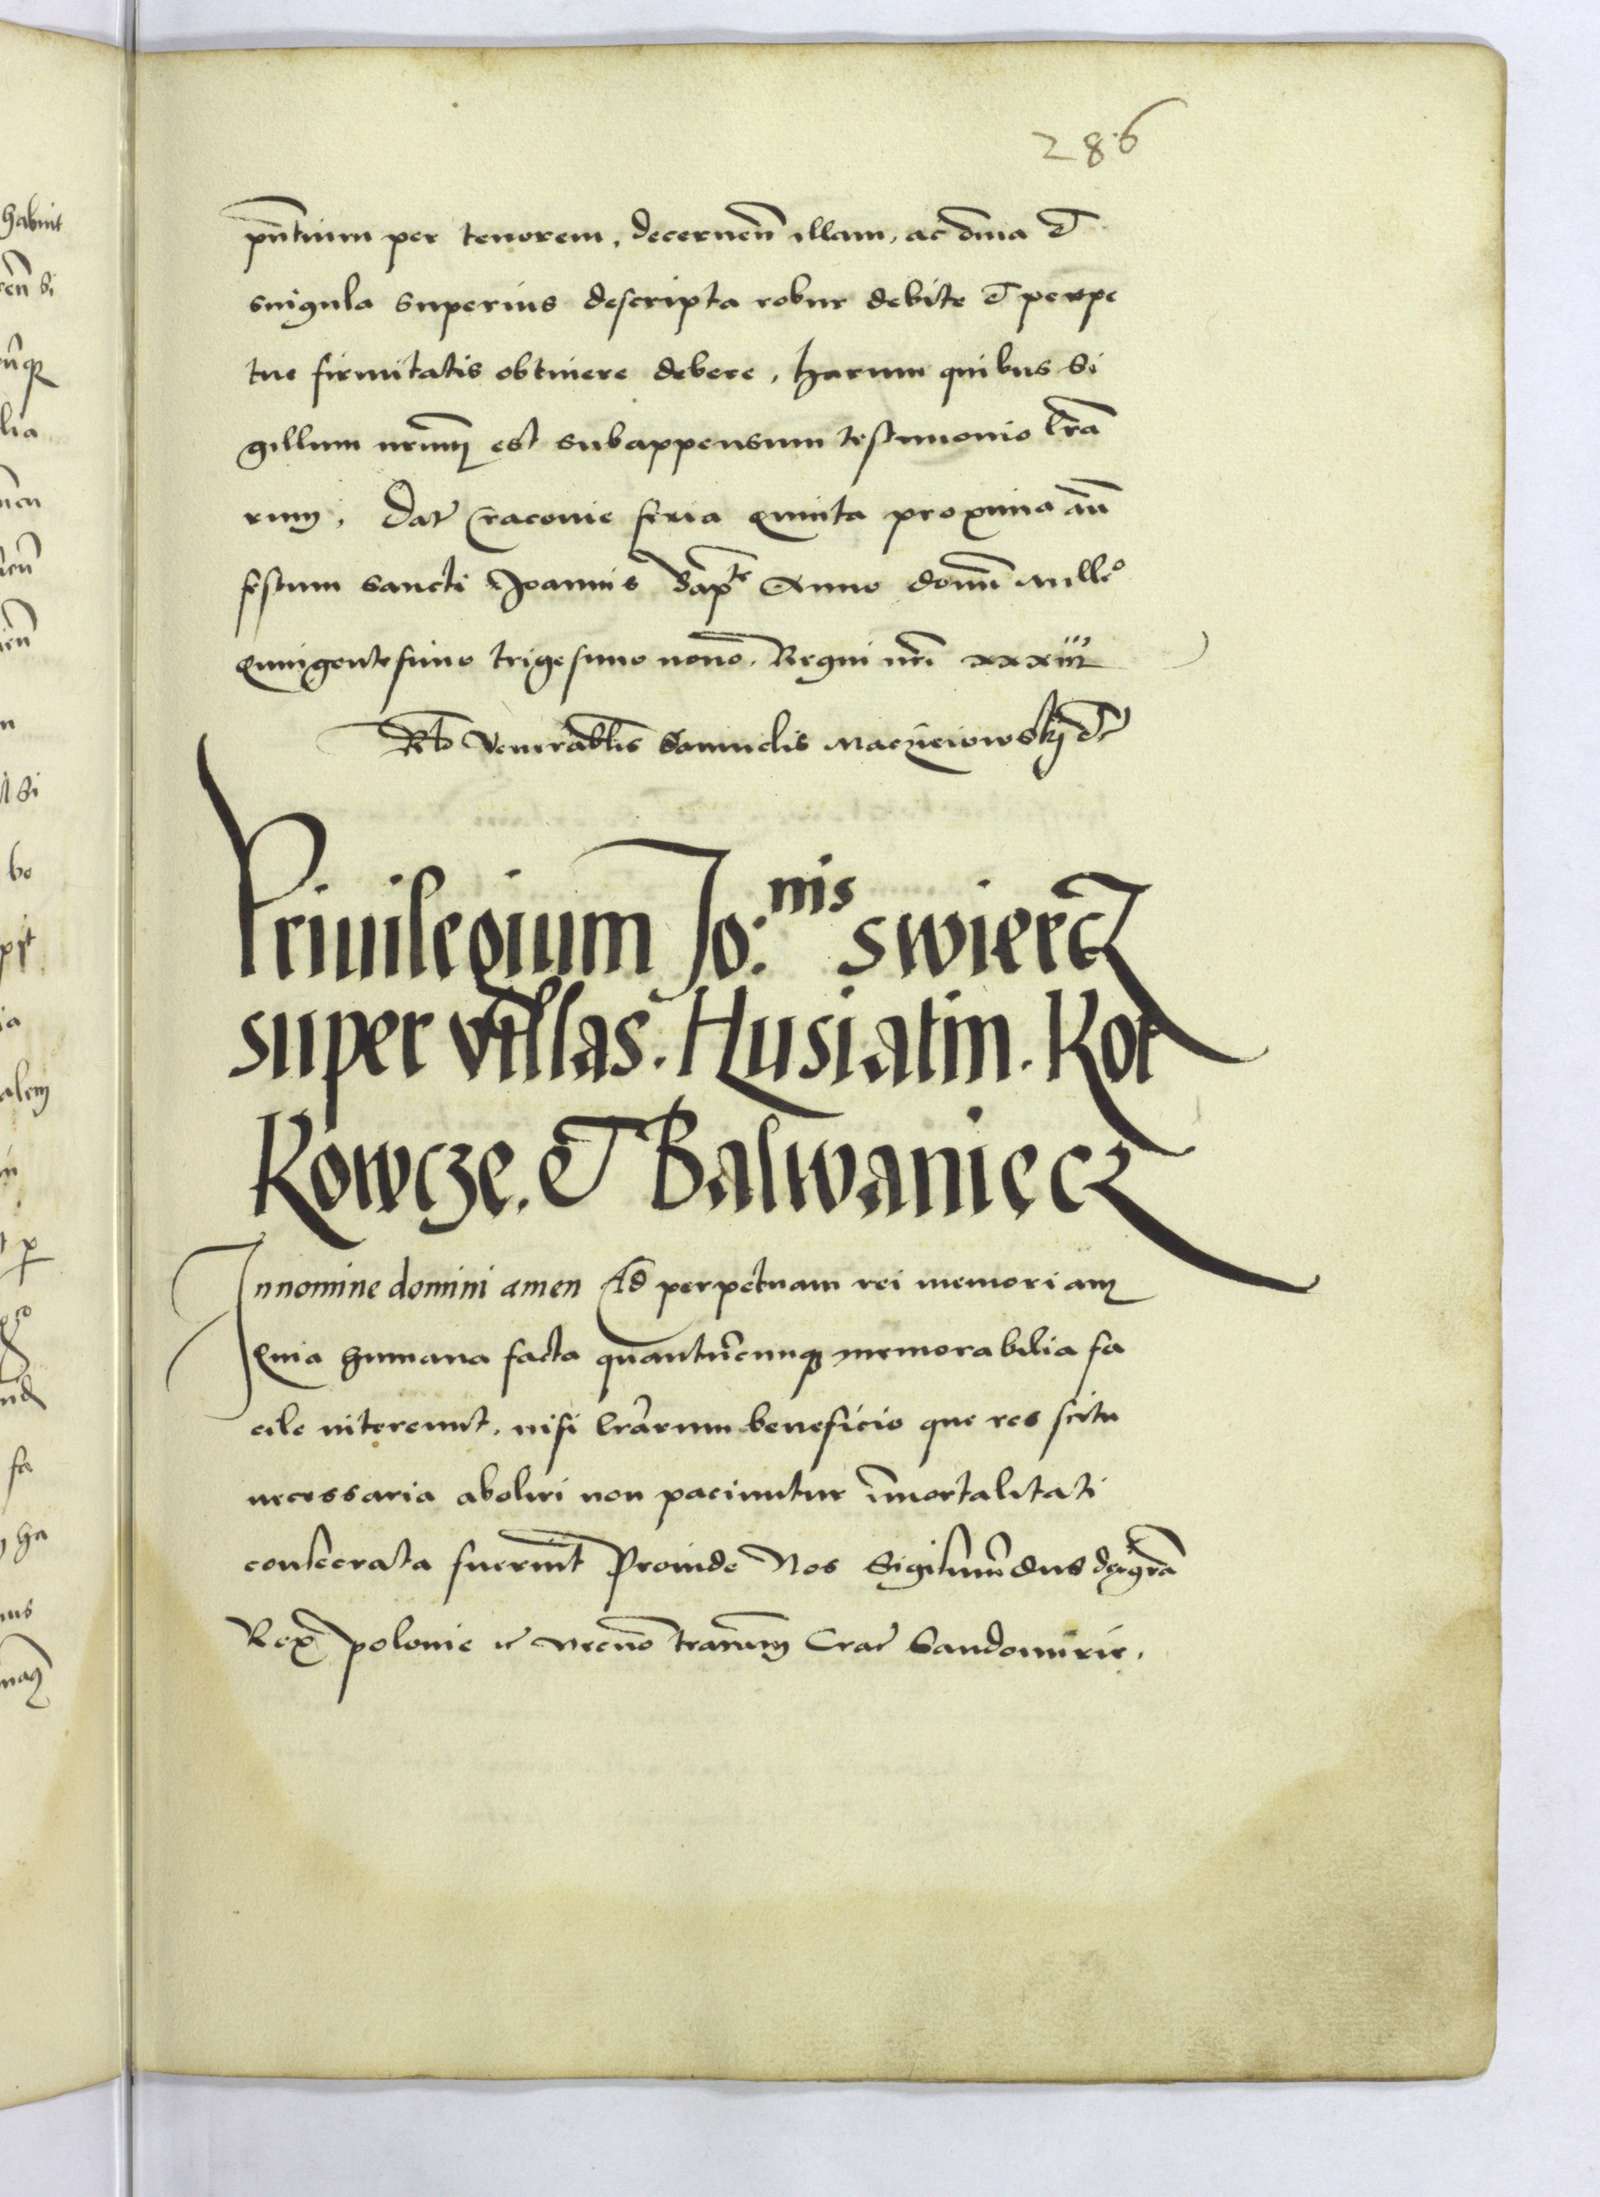 286
pntium per tenorem, decernen illam, ac omia et
singula superius descripta robur debite et perpe
tue firmitatis obtinere debere, harum quibus si
gillum nrum est subappensum testimonio lra
rum, Dat Cracovie feria quinta proxima an
festum sancti Joannis Bapte Anno domi Milleo
quingentesimo trigesimo nono, Regni nri xxxiii
Rlo Venerablis Samuelis Maczieiowskj etc
Privilegium Jo:nis Swiercz
super villas. Husiatin. Kot
Kowcze. et Balwaniecz
In nomine domini amen Ad perpetuam rei memoriam
Quia humana facta quantucunque memorabilia fa
cile intereunt, nisi lrarum beneficio que res scitu
necessaria aboleri non paciuntur immortalitati
consecrata fuerint Proinde Nos Sigismundus dei gra
Rex polonie necno trarum Crac Sandomirie,